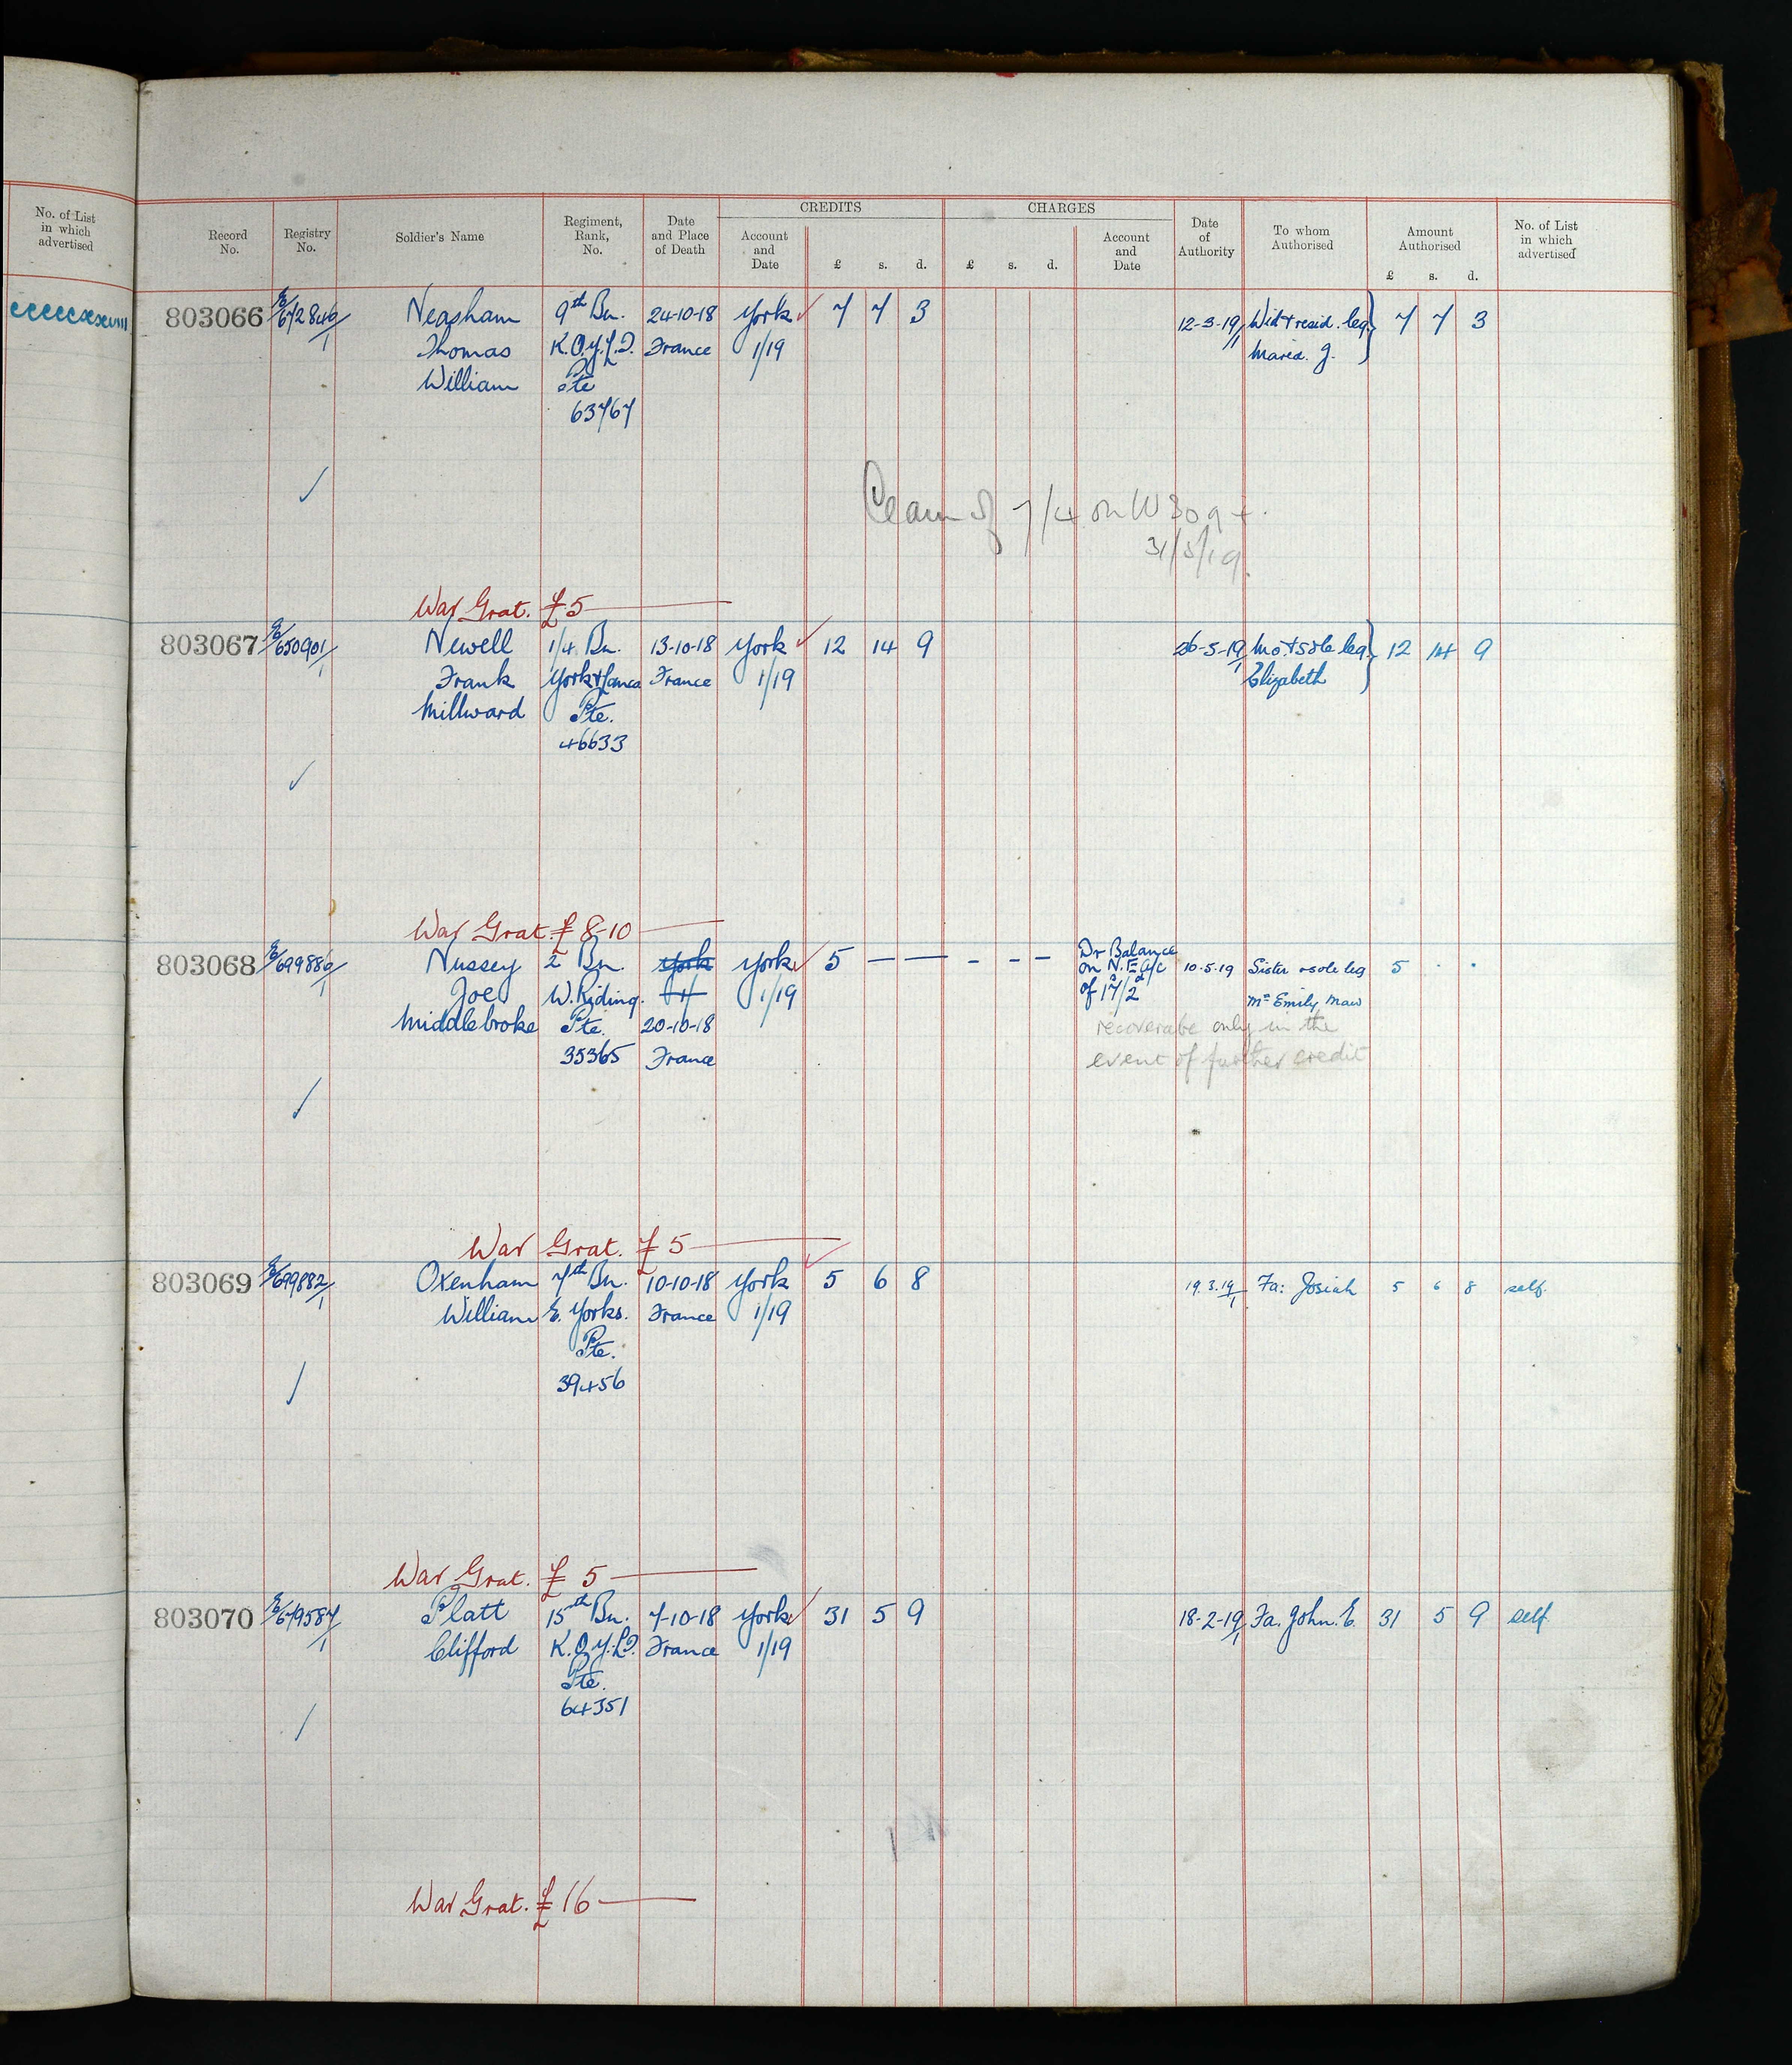 No. of List
in which
advertised
ccccccxxviii
Record
No.
Registry
No.
Soldier's Name
Regiment,
Rank,
No.
Date
and Place
of Death
CREDITS
Account
and
Date
£ s. d.
CHARGES
£ s. d.
Account
and
Date
Date
of
Authority
To whom
Authorised
Amount
Authorised
£ s. d.
No. of List
in which
advertised
803066 E/672846/1 Neasham 9th Bn. 24-10-18 York 7 7 3 12-3-19/1 Wid & resid. leg. 7 7 3
Thomas K.O.Y.L.I. France 1/19 J.
William Pte
63767
Claim of 7/4 on W
31/5/19
War Grat. £5
803067 E/650901/1 Newell 1/4 Bn. 13-10-18 York 12 14 9 26-5-19/1 Mo. & sole leg. 12 14 9
Frank York & Lancs France 1/19 Elizabeth
Millward Pte.
46633
War Grat £8-10
803068 E/699886/1 Nussey 2 Bn. York York 5 — — - - - Dr Balance on N.E. a/c of 17/2 10.5.19 Sister & sole leg 5 . .
Joe W. Riding. 1/19 Mrs Emily Maw
Middlebroke Pte. 20-10-18 recoverabe only in the
35365 France event of further credit
War Grat. £5
803069 E/699882/1 Oxenham 7th Bn. 10-10-18 York 5 6 8 19.3.19/1 Fa: Josiah 5 6 8 self.
William E. Yorks. France 1/19
Pte.
39456
War Grat. £5
803070 E/679587/1 Platt 15th Bn. 7-10-18 York 31 5 9 18-2-19/1 Fa. John. E. 31 5 9 self.
Clifford K.O.Y.L.I. France 1/19
Pte.
64351
War Grat. £16